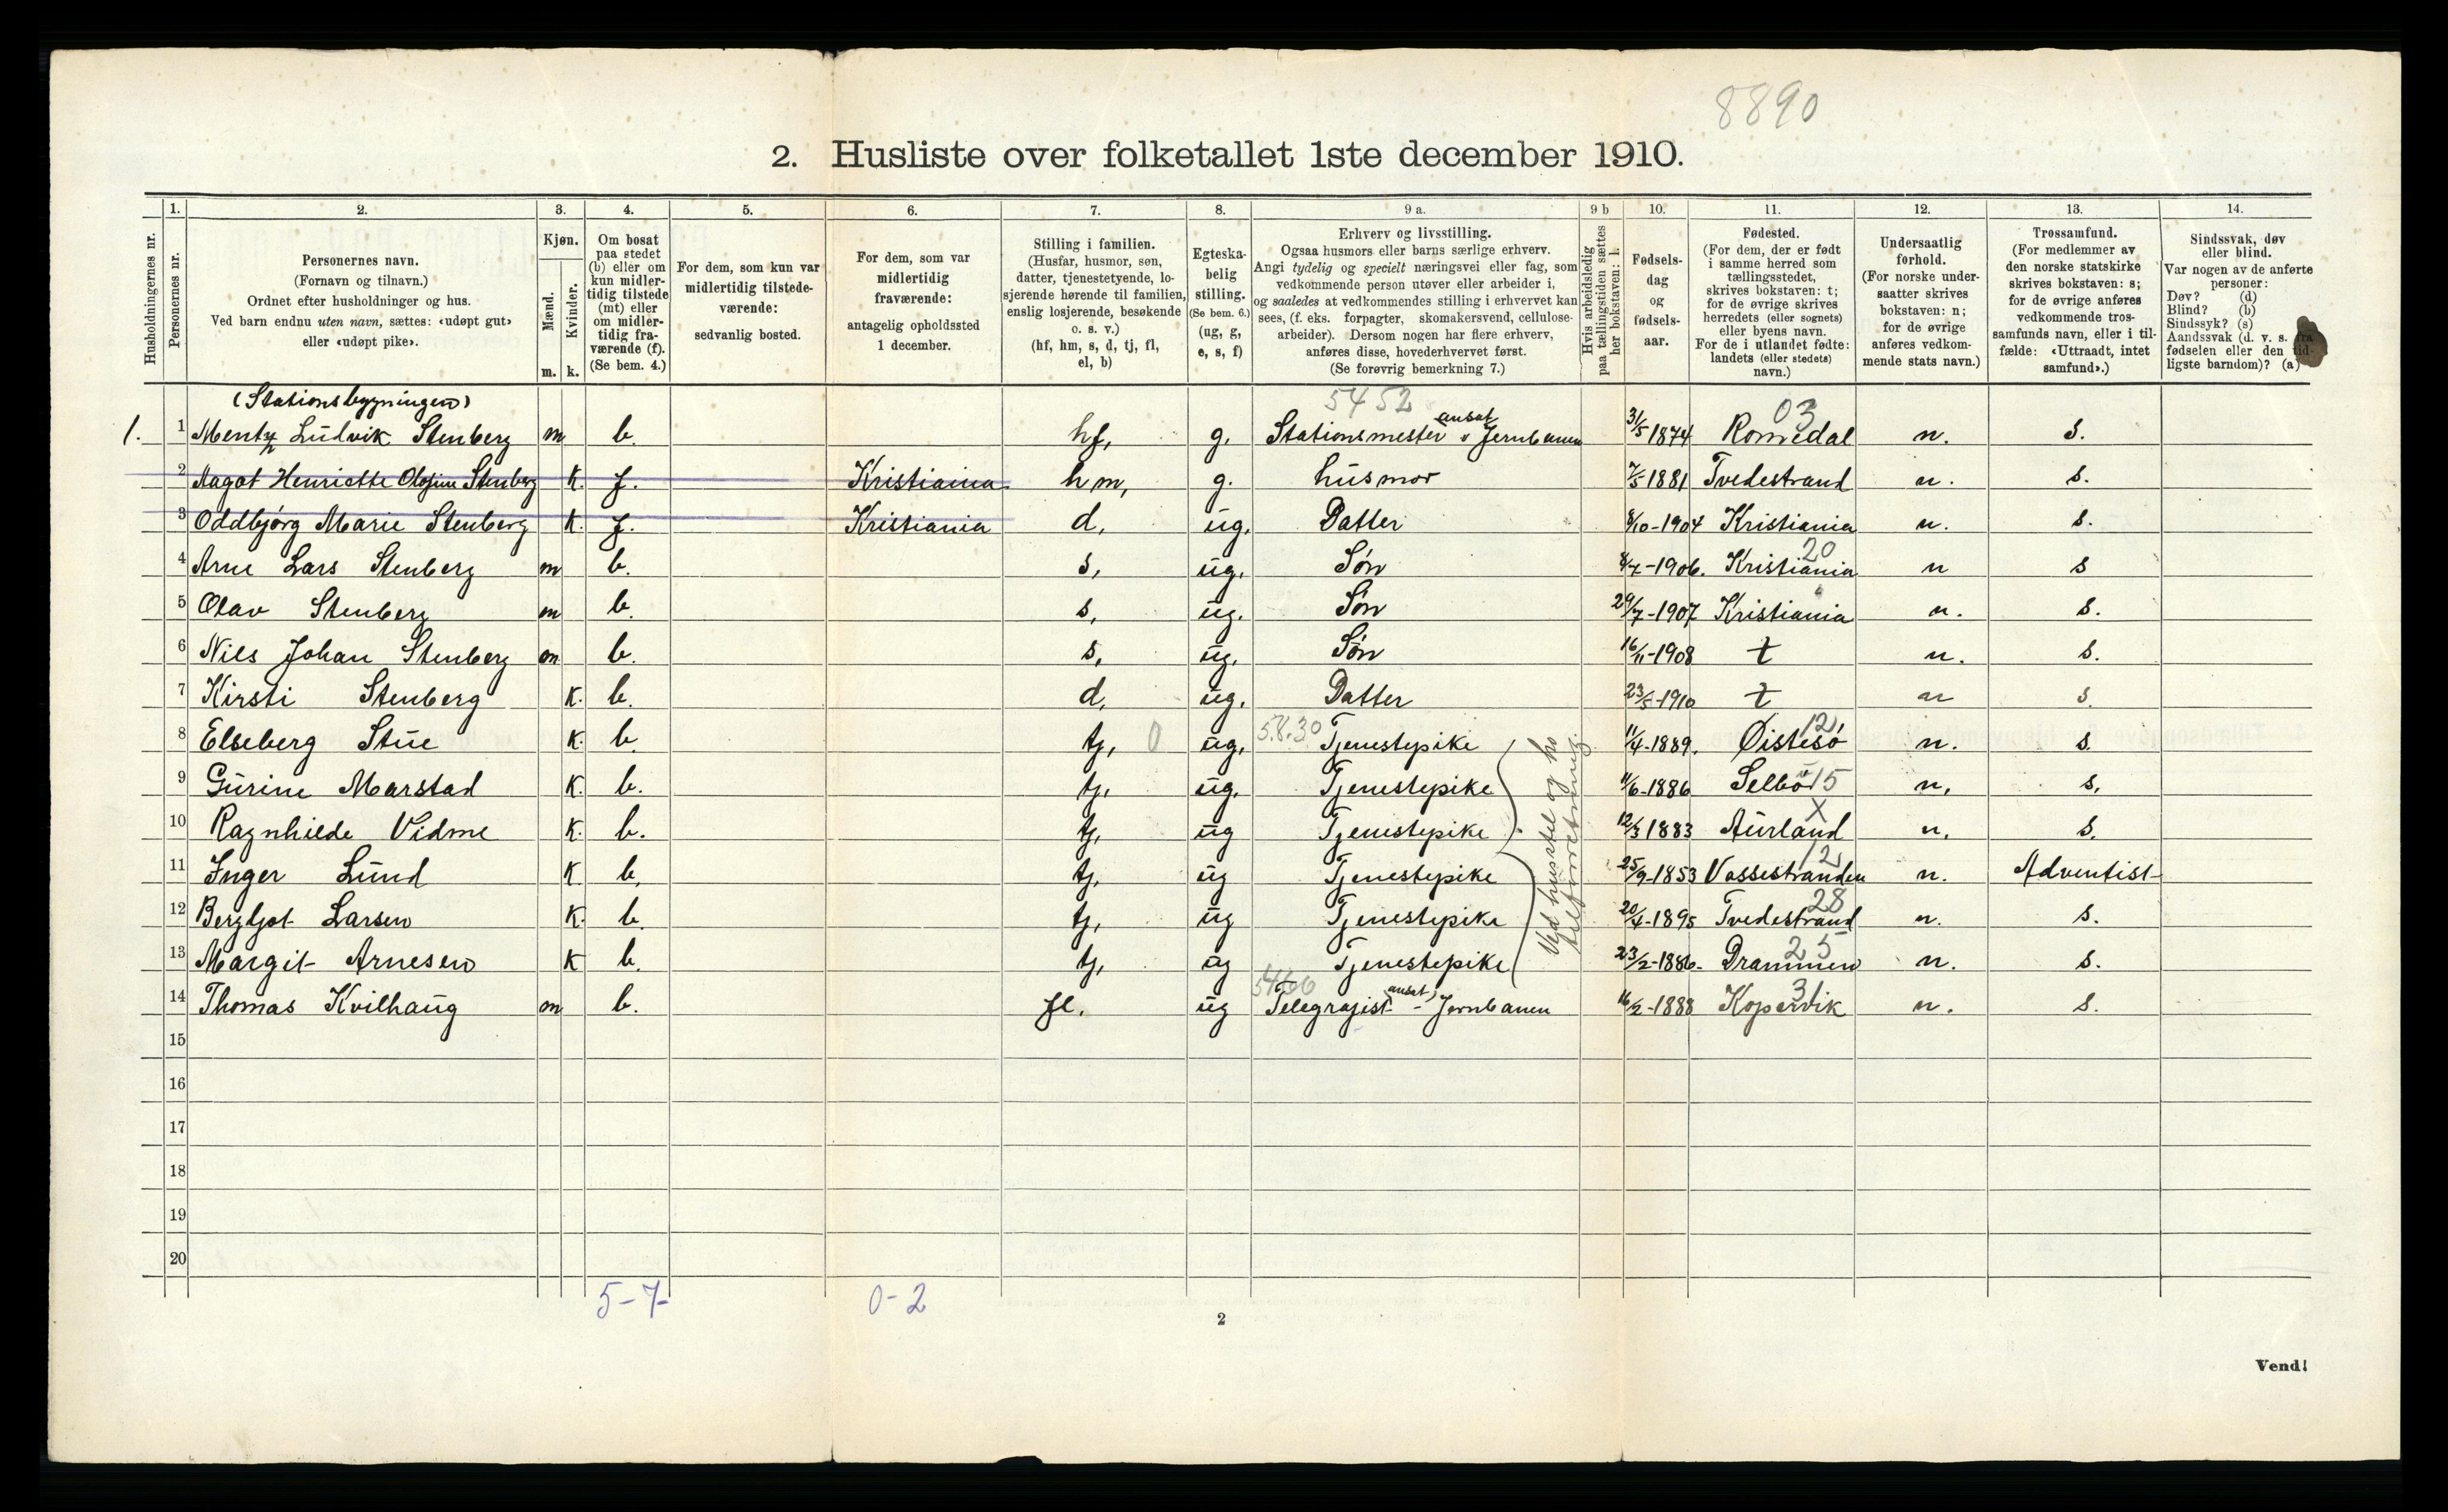 8890
2. Husliste over folketallet 1ste december 1910.
1. 2. 3. 4. 5. 6. 7. 8. 9 a. 9 b 10. 11. 12. 13. 14.
Husholdningernes nr.
Personernes nr.
Personernes navn.
(Fornavn og tilnavn.)
Ordnet efter husholdninger og hus.
Ved barn endnu uten navn, sættes: «udøpt gut»
eller «udøpt pike».
Kjøn.
Mænd.
Kvinder.
m. k.
Om bosat
paa stedet
(b) eller om
kun midler-
tidig tilstede
(mt) eller
om midler-
tidig fra-
værende (f).
(Se bem. 4.)
For dem, som kun var
midlertidig tilstede-
værende:
sedvanlig bosted.
For dem, som var
midlertidig
fraværende:
antagelig opholdssted
1 december.
Stilling i familien.
(Husfar, husmor, søn,
datter, tjenestetyende, lo-
sjerende hørende til familien,
enslig losjerende, besøkende
o. s. v.)
(hf, hm, s, d, tj, fl,
el, b)
Egteska-
belig
stilling.
(Se bem. 6.)
(ug, g,
e, s, f)
Erhverv og livsstilling.
Ogsaa husmors eller barns særlige erhverv.
Angi tydelig og specielt næringsvei eller fag, som
vedkommende person utøver eller arbeider i,
og saaledes at vedkommendes stilling i erhvervet kan
sees, (f. eks. forpagter, skomakersvend, cellulose-
arbeider). Dersom nogen har flere erhverv,
anføres disse, hovederhvervet først.
(Se forøvrig bemerkning 7.)
Hvis arbeidsledig
paa tællingstiden sættes
her bokstaven: l.
Fødsels-
dag
og
fødsels-
aar.
Fødested.
(For dem, der er født
i samme herred som
tællingsstedet,
skrives bokstaven: t;
for de øvrige skrives
herredets (eller sognets)
eller byens navn.
For de i utlandet fødte:
landets (eller stedets)
navn.)
Undersaatlig
forhold.
(For norske under-
saatter skrives
bokstaven: n;
for de øvrige
anføres vedkom-
mende stats navn.)
Trossamfund.
(For medlemmer av
den norske statskirke
skrives bokstaven: s;
for de øvrige anføres
vedkommende tros-
samfunds navn, eller i til-
fælde: «Uttraadt, intet
samfund».)
Sindssvak, døv
eller blind.
Var nogen av de anførte
personer:
Døv? (d)
Blind? (b)
Sindssyk? (s)
Aandssvak (d. v. s. fra
fødselen eller den tid-
ligste barndom)? (a)
(Stationsbygningen) 5452 03
1. 1 Mentz Ludvik Stenberg m b. hf, g. Stationsmester ansat v Jernbanen 31/5 1874 Romedal n. s.
2 Aagot Henriette Olofine Stenberg K. f. Kristiania hm, g. husmor 7/5-1881 Tvedestrand n. s.
3 Oddbjørg Marie Stenberg K. f. Kristiania d, ug. Datter 8/10-1904 Kristiania n. s.
4 Arne Lars Stenberg m b. s, ug. Søn 8/7-1906. Kristiania 20 n s
5 Olav Stenberg m b. s, ug. Søn 29/7-1907 Kristiania n. s.
6 Nils Johan Stenberg m b. s, ug. Søn 16/11-1908 t n. s.
7 Kirsti Stenberg K. b. d, ug. Datter 23/5-1910 t n s.
8 Elseberg Stue K. b. tj, 0 ug, 5.8.30 Tjenestepike 11/4-1889. Øistesø 12 n. s.
9 Gurine Marstad K. b. tj, ug. Tjenestepike 11/6-1886 Selbø 15 n, s,
10 Ragnhilde Vidme K. b. tj, ug Tjenestepike 12/3 1883 Aurland X n, s.
11 Inger Lund K. b, tj, ug Tjenestepike 25/9-1853 Vossestranden 12 n. Adventist
12 Bergljot Larsen K. b. tj, ug Tjenestepike 20/4-1895 Tvedestrand 28 n. s.
13 Margit Arnesen K b. tj, ug Tjenestepike 23/2-1886- Drammen 25 n. s.
Ved husstel og ho
telforretning.
14 Thomas Kvilhaug m b. fl. ug 5466 Telegrafist ansat - Jernbanen 16/2-1888 Kopervik 31 n. s.
15
16
17
18
19
20
5-7- 0-2
2
Vend!